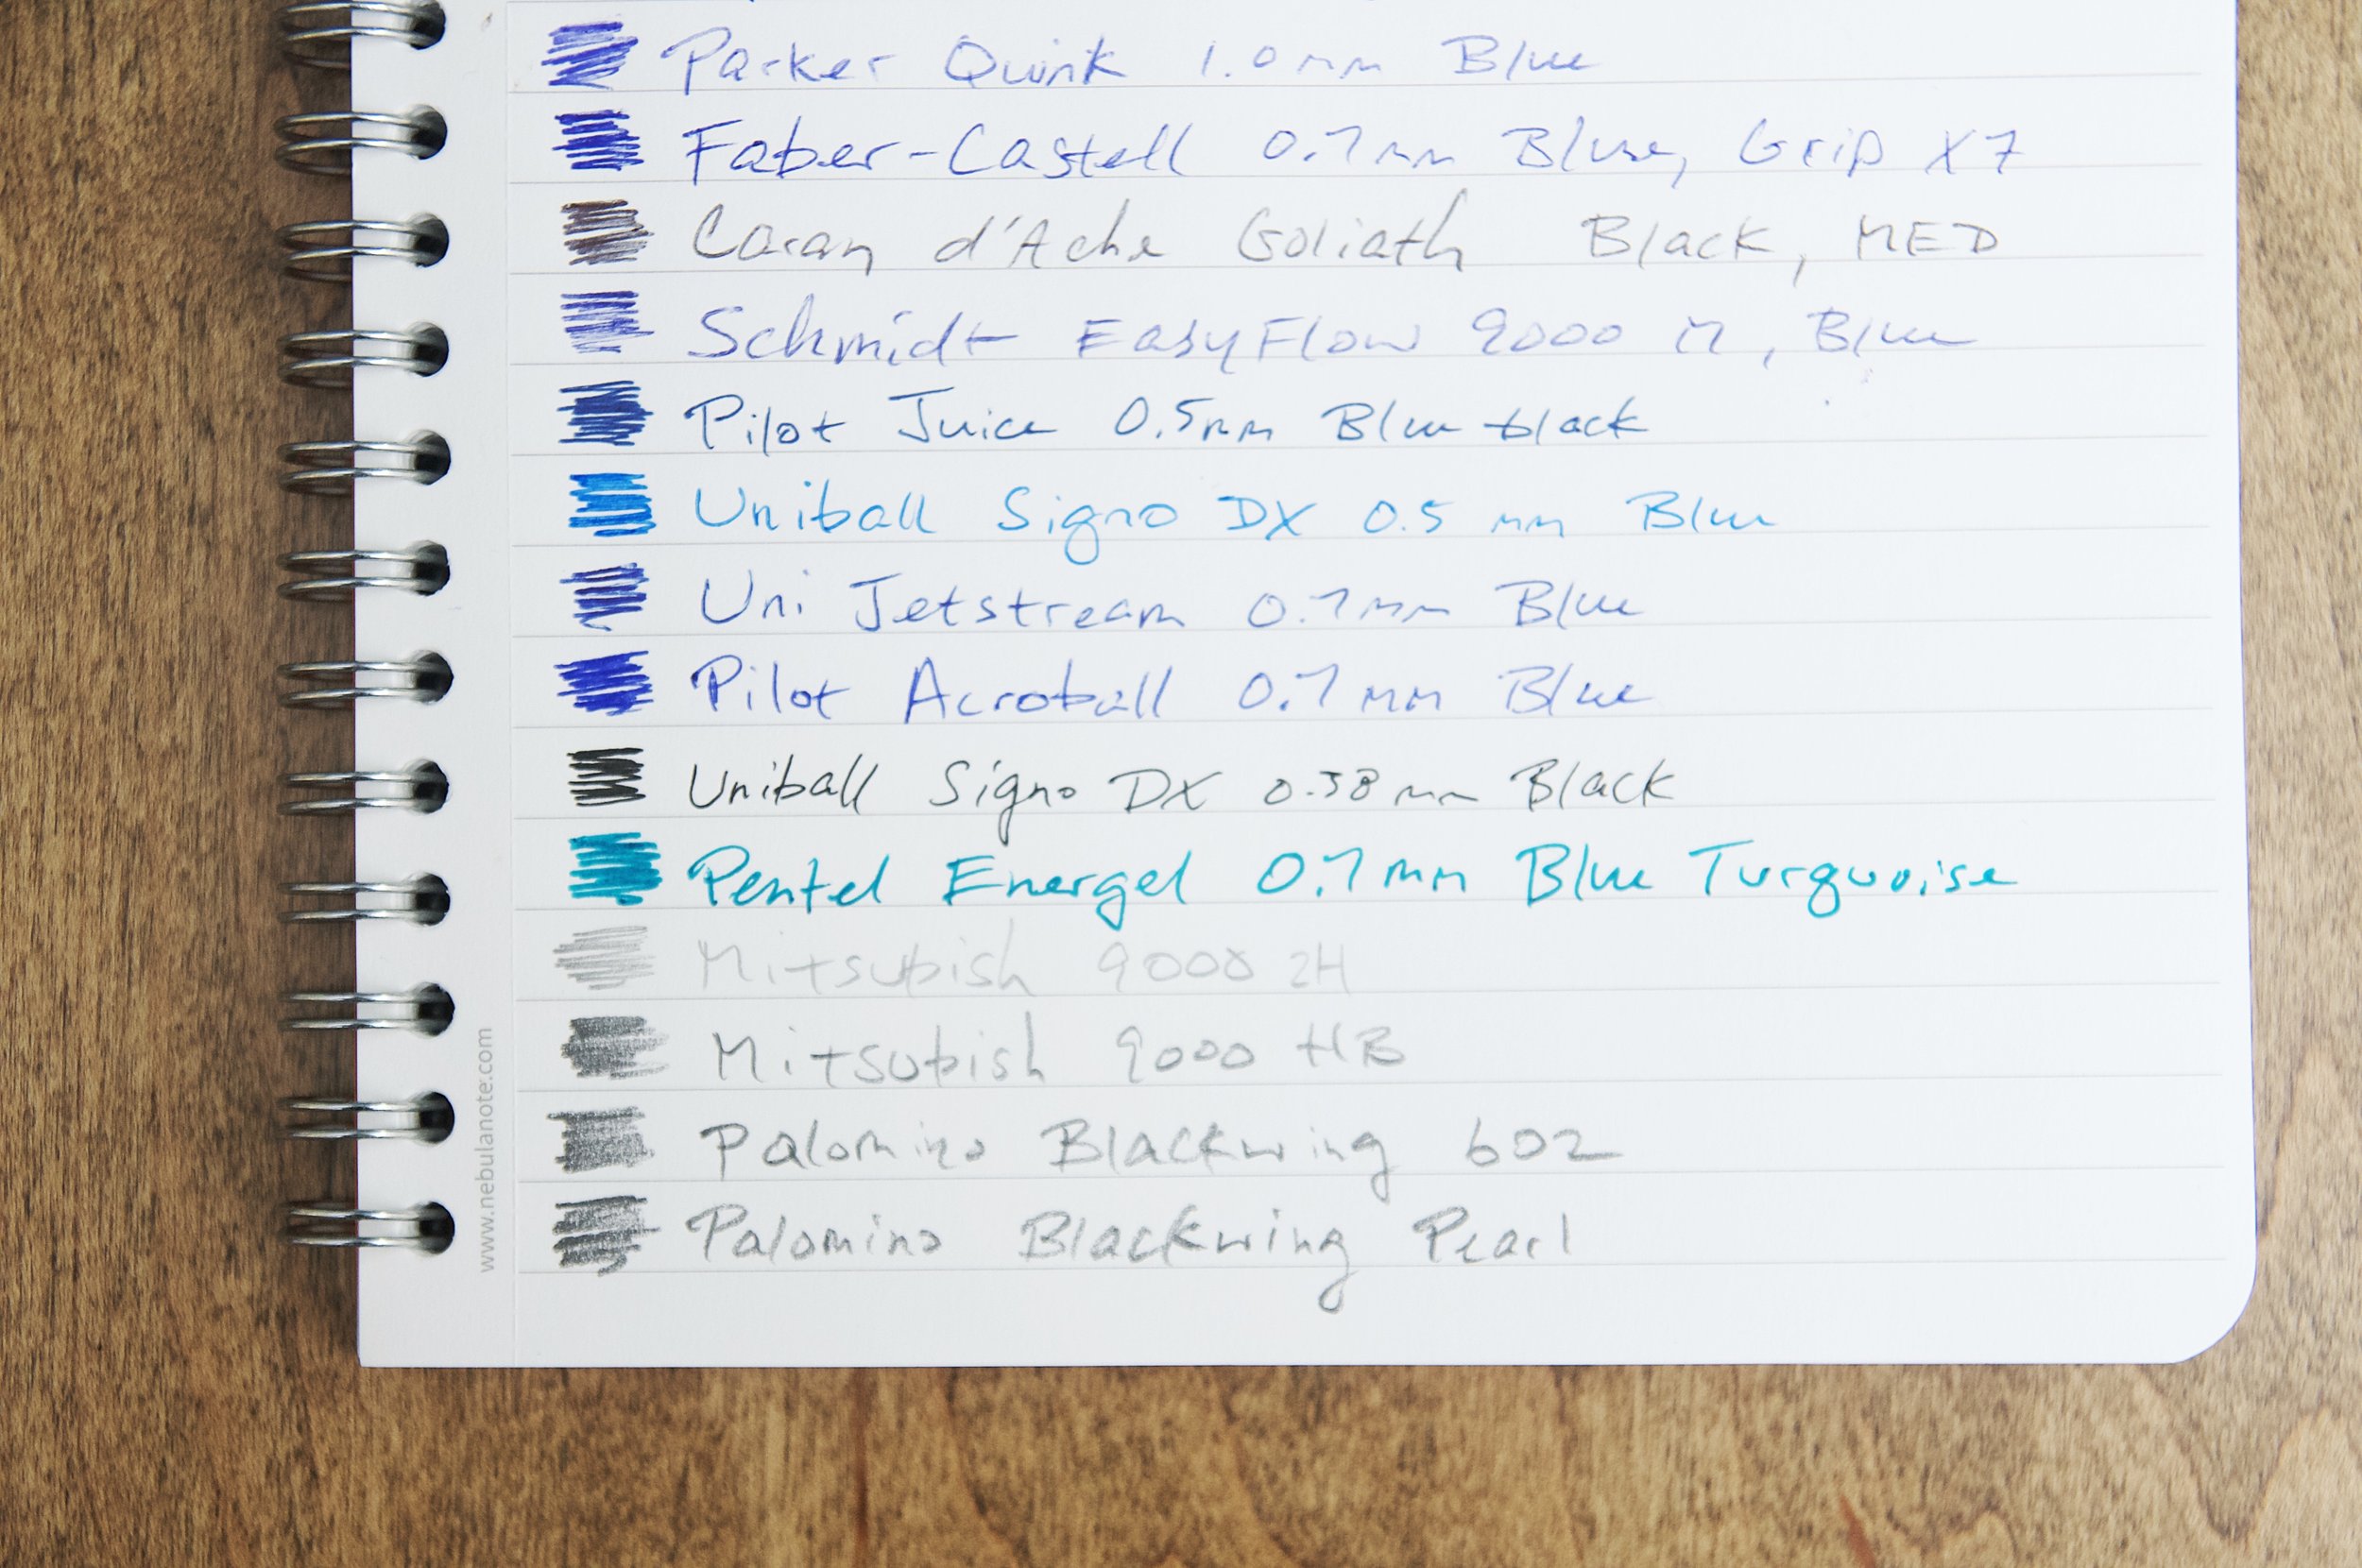 Parker Quink 1.0mm Blue
Faber-Castell 0.7mm Blue, Grip X7
Caran d'Ache Goliath Black, MED
Schmidt EasyFlow 9000 M, Blue
Pilot Juice 0.5mm Blue-black
Uniball Signo DX 0.5 mm Blue
Uni Jetstream 0.7mm Blue
Pilot Acroball 0.7mm Blue
Uniball Signo DX 0.38mm Black
Pentel Energel 0.7mm Blue Turquoise
Mitsubish 9000 2H
Mitsubish 9000 HB
Palomino Blackwing 602
Palomino Blackwing Pearl
www.nebulanote.com